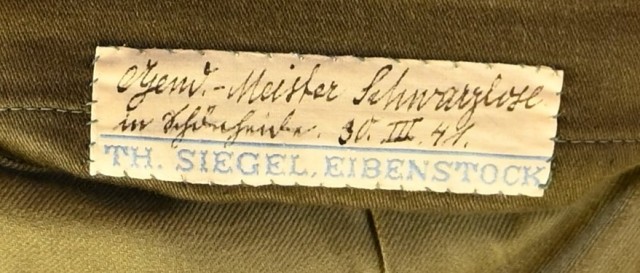 Gend.-Meister Schwarzlose
in Schönheide. 30. III. 41.
TH. SIEGEL, EIBENSTOCK